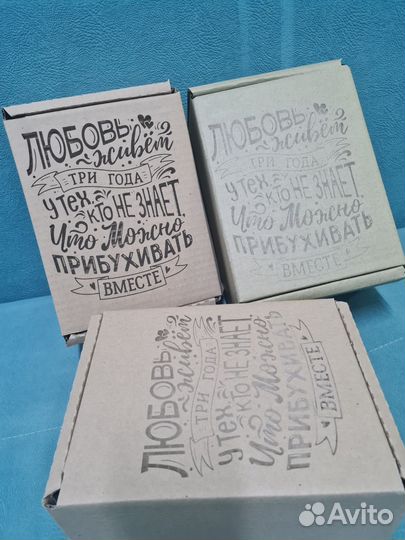 ЛЮБОВЬ
живёт
ТРИ ГОДА
У ТЕХ,
КТО НЕ ЗНАЕТ,
Что Можно
ПРИБУХИВАТЬ
ВМЕСТЕ
ЛЮБОВЬ
живёт
ТРИ ГОДА
У ТЕХ,
КТО НЕ ЗНАЕТ,
Что Можно
ПРИБУХИВАТЬ
ВМЕСТЕ
ЛЮБОВЬ
живёт
ТРИ ГОДА
У ТЕХ,
КТО НЕ ЗНАЕТ,
Что Можно
ПРИБУХИВАТЬ
ВМЕСТЕ
Avito